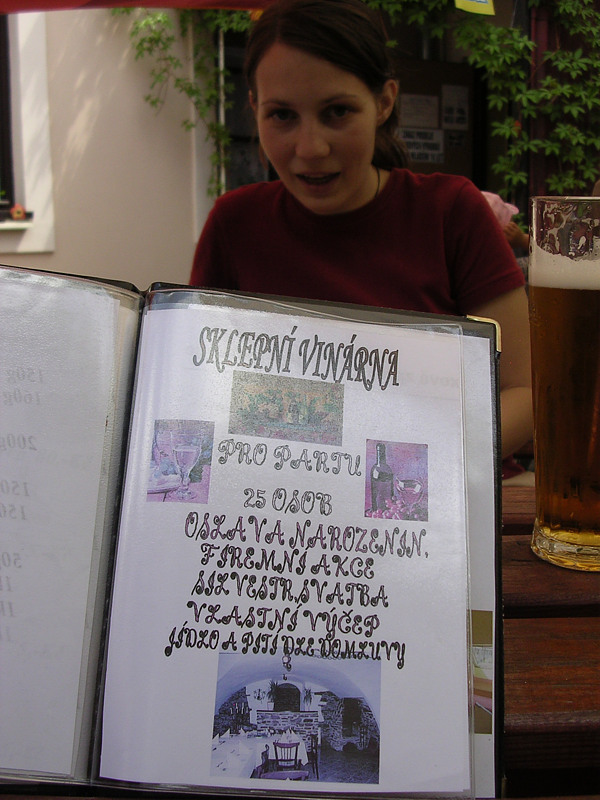 SKLEPNÍ VINÁRNA
PRO PARTU
25 OSOB
OSLAVA NAROZENIN,
FIREMNÍ AKCE
SILVESTR,SVATBA
VLASTNÍ VÝČEP
JÍDLO A PITÍ DLE DOMLUVY